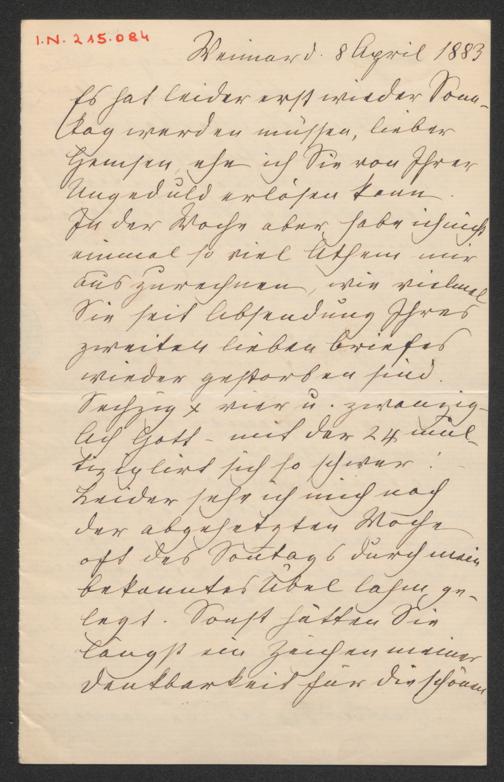 I.N. 215.084
Weimar d. 8 April 1883
Es hat leider erst wieder Sonn-
tag werden müssen, lieber
Hemsen, ehe ich Sie von Ihrer
Ungeduld erlösen kann.
In der Woche aber habe ich nicht
einmal so viel Athem mir
auszurechnen, wie vielmal
Sie seit Absendung Ihres
zweiten lieben Briefes
wieder gestorben sind.
Sechzig x vier u. zwanzig -
Ach Gott - mit der 24 mul-
tiziplirt sich so schwer!
Leider sehe ich mich nach
der abgehetzten Woche
oft des Sontags durch mein
bekanntes Übel lahm ge-
legt. Sonst hätten Sie
längst ein Zeichen meiner
Dankbarkeit für die schönen